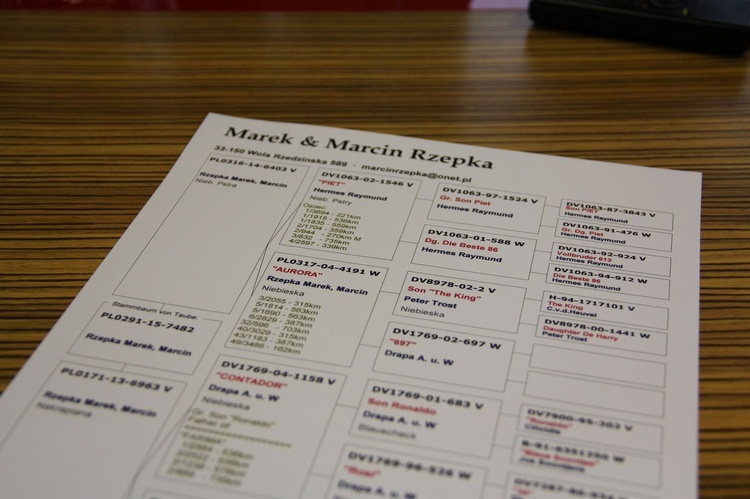 Marek & Marcin Rzepka
33-150 Wola Rzedzinska 589 - marcinrzepka@onet.pl
PL0316-14-6403 V
Rzepka Marek, Marcin
Nieb. Pstra
Stammbaum von Taube:
PL0291-15-7482
Rzepka Marek, Marcin
PL0171-13-6963 V
Rzepka Marek, Marcin
Nakrapiana
DV1063-02-1546 V
"PIET"
Hermes Raymund
Nieb. Pstry
Ojciec:
1/3694 - 221km
1/1915 - 536km
1/1835 - 559km
2/1704 - 359km
2/944 - 270km M
3/832 - 735km
4/2597 - 339km
PL0317-04-4191 W
"AURORA"
Rzepka Marek, Marcin
Niebieska
3/2055 - 315km
5/1814 - 563km
5/1690 - 563km
6/2829 - 387km
32/596 - 703km
40/3029 - 315km
43/1183 - 387km
49/3486 - 162km
DV1769-04-1158 V
"CONTADOR"
Drapa A. u. W
Niebieska
Gr. Son "Ronaldo"
Father of
DV1063-97-1524 V
Gr. Son Piet
Hermes Raymund
DV1063-01-588 W
Dg. Die Beste 86
Hermes Raymund
DV8978-02-2 V
Son "The King"
Peter Trost
Niebieska
DV1769-02-697 W
"697"
Drapa A. u. W
DV1769-01-683 V
Son Ronaldo
Drapa A. u. W
Blauscheck
DV1769-96-526 W
Drapa A. u. W
DV1063-87-3843 V
Son PIET
Hermes Raymund
DV1063-91-476 W
Gr. Dg. Piet
Hermes Raymund
DV1063-92-924 V
Vollbruder 613
Hermes Raymund
DV1063-94-912 W
Die Beste 96
Hermes Raymund
H-94-1717101 V
The King
C.v.d.Heuvel
DV8978-00-1441 W
Daughter De Harry
Peter Trost
DV7900-95-202 V
"Ronaldo"
B-91-6351250 W